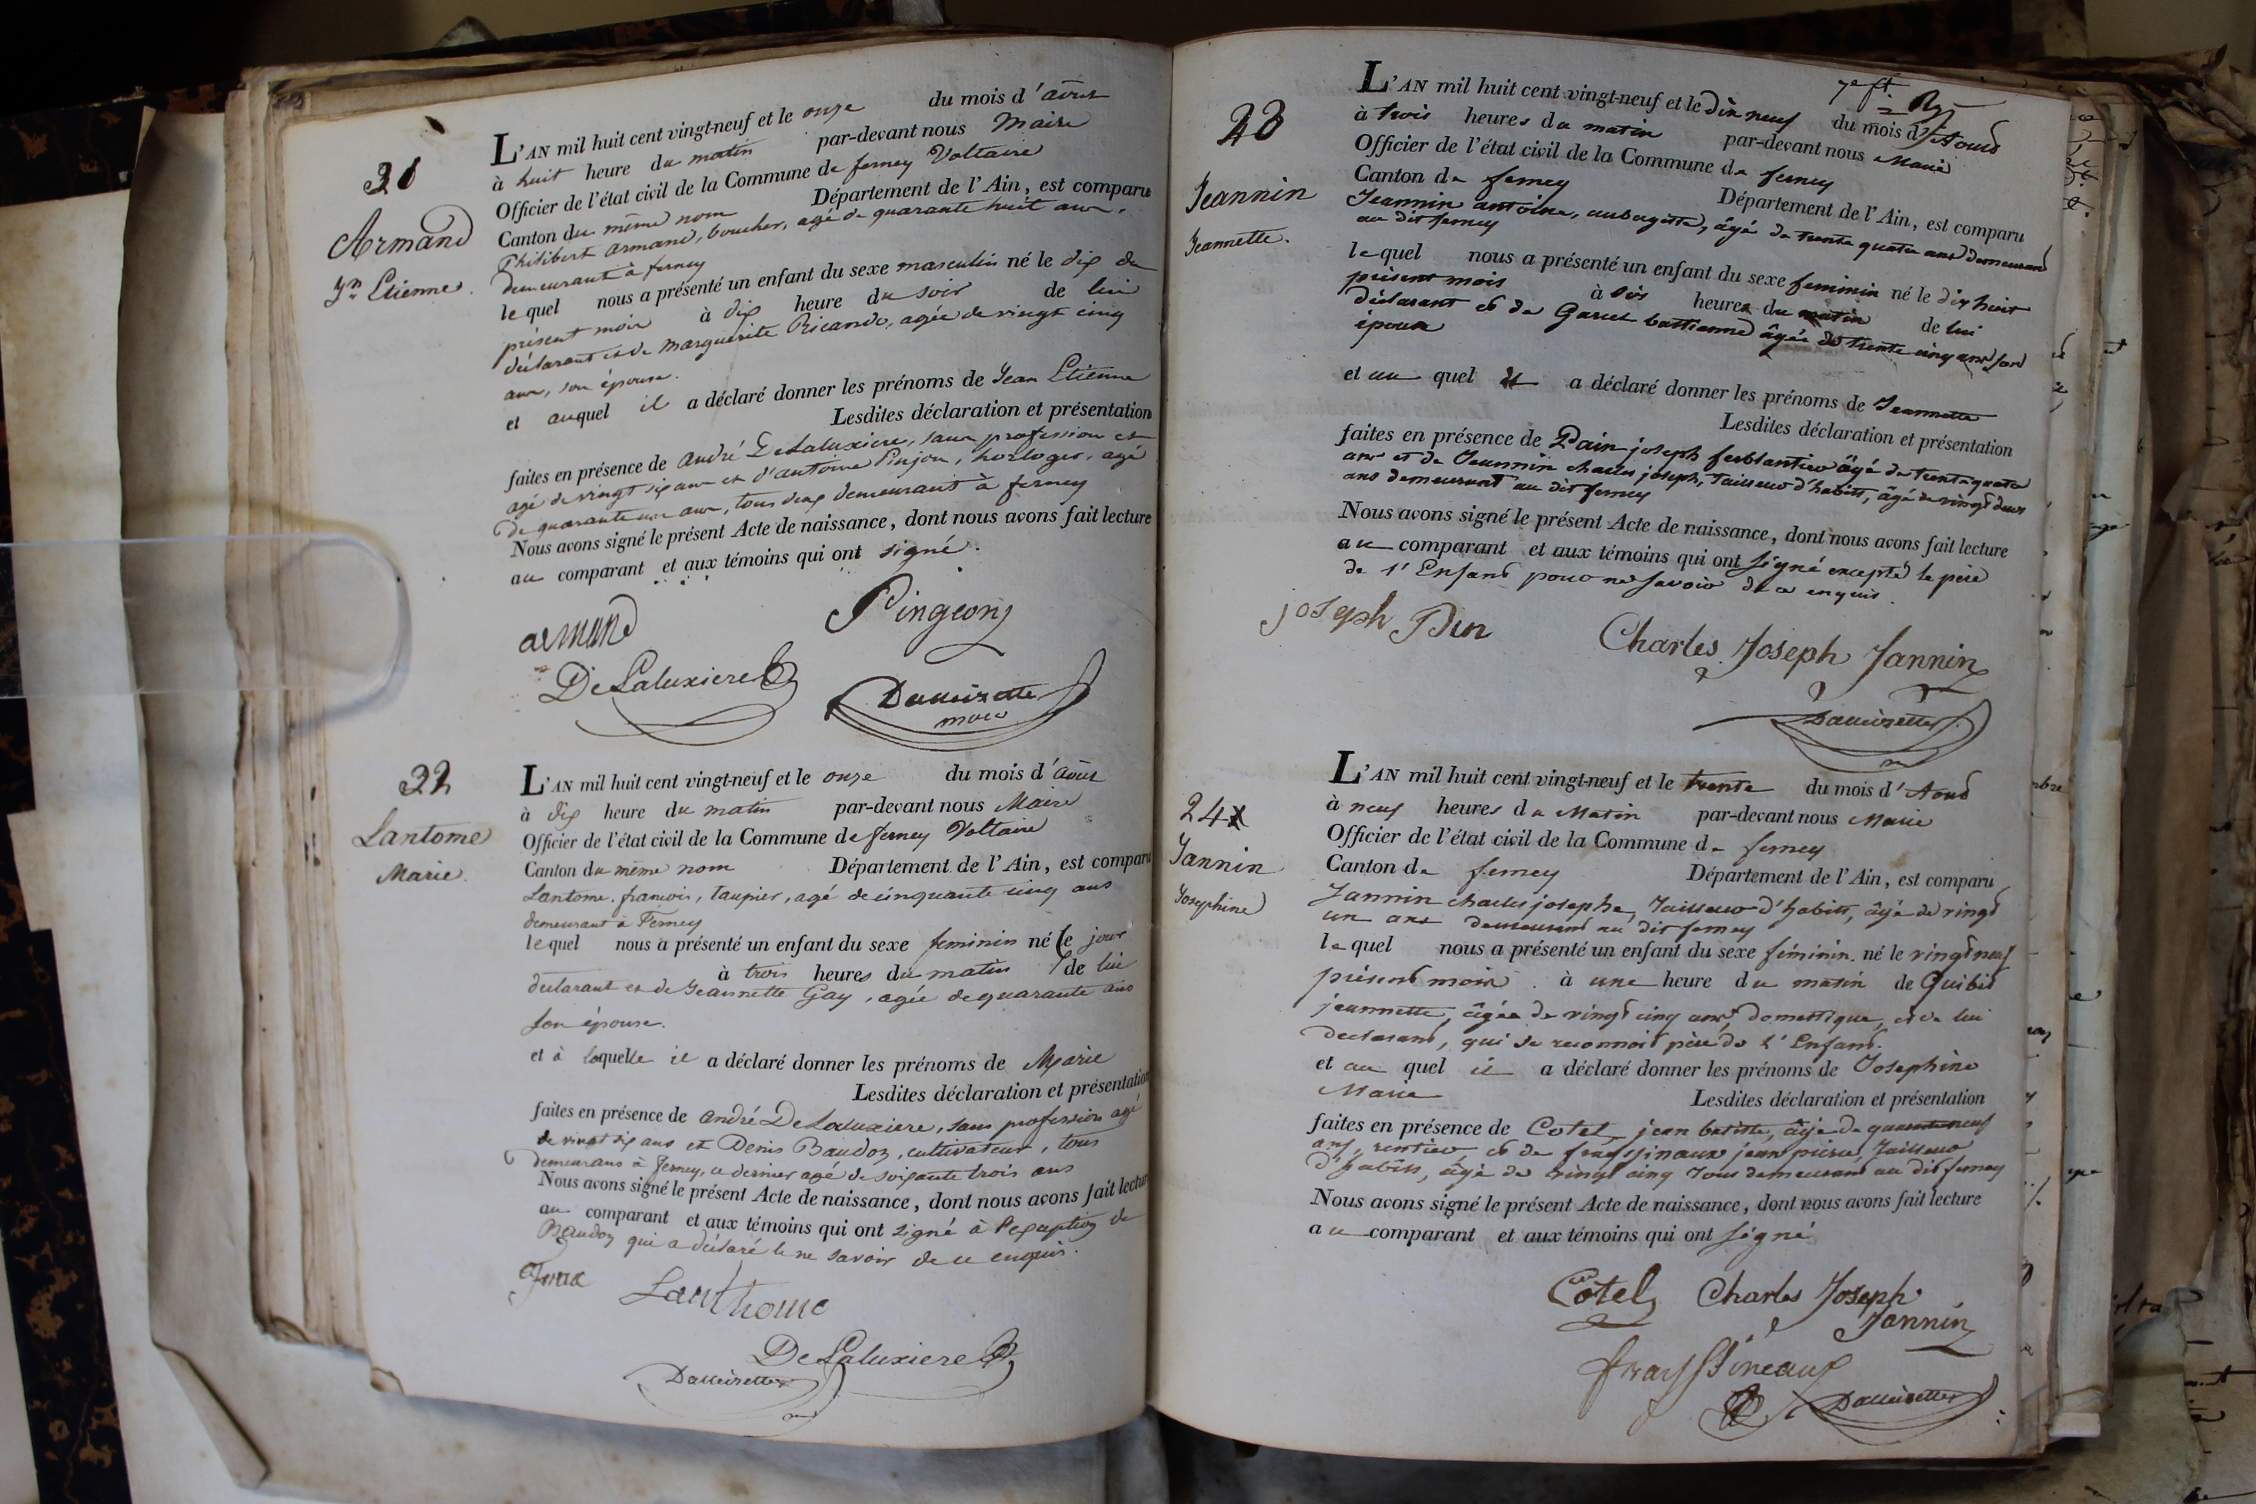 21
Armand
Jn Etienne.
L'AN mil huit cent vingt-neuf et le onze du mois d'août
à huit heure du matin par-devant nous Maire
Officier de l'état civil de la Commune de ferney Voltaire
Canton du même nom Département de l'Ain, est comparu
Philibert Armand, boucher, agé de quarante huit ans,
demeurant à ferney
le quel nous a présenté un enfant du sexe masculin né le dix du
présent mois à dix heure du soir de lui
déclarant et de Marguerite Ricando, agée de vingt cinq
ans, son épouse.
et auquel il a déclaré donner les prénoms de Jean Etienne
Lesdites déclaration et présentation
faites en présence de André DeLaluxiere, sans profession et
agé de vingt six ans et d'antoine Pinjon, horloger, agé
de quarante un ans, tous deux demeurant à ferney
Nous avons signé le présent Acte de naissance, dont nous avons fait lecture
au comparant et aux témoins qui ont signé.
armand
Pingeon
DeLaluxiere
22
Lantome
Marie.
L'AN mil huit cent vingt-neuf et le onze du mois d'août
à dix heure du matin par-devant nous Maire
Officier de l'état civil de la Commune de ferney Voltaire
Canton du même nom Département de l'Ain, est comparu
Lantome françois, taupier, agé de cinquante cinq ans
demeurant à Ferney
le quel nous a présenté un enfant du sexe feminin né le jour
à trois heures du matin de lui
déclarant et de Jeannette Gay, agée de quarante ans
son épouse.
et à laquelle il a déclaré donner les prénoms de Marie
Lesdites déclaration et présentation
faites en présence de André DeLaluxiere, sans profession agé
de vingt six ans et Denis Baudoz, cultivateur, tous
demeurans à ferney, ce dernier agé de soixante trois ans
Nous avons signé le présent Acte de naissance, dont nous avons fait lecture
au comparant et aux témoins qui ont signé à l'exception de
Baudoz qui a déclaré le ne savoir de ce enquis.
Lanthome
DeLaluxiere
7e ft.
23
Jeannin
Jeannette.
L'AN mil huit cent vingt-neuf et le dix neuf du mois d'Aout
à trois heures du matin par-devant nous Maire
Officier de l'état civil de la Commune de ferney
Canton de ferney Département de l'Ain, est comparu
Jeannin antoine, aubergiste, âgé de trente quatre ans demeurant
au dit ferney
le quel nous a présenté un enfant du sexe feminin né le dix huit
présent mois à six heures du matin de lui
déclarant et de Garret bastienne âgée de trente cinq ans son
épouse
et au quel il a déclaré donner les prénoms de Jeannette
Lesdites déclaration et présentation
faites en présence de Pain joseph ferblantier âgé de trente quatre
ans et de Jeannin charles joseph, tailleur d'habits, âgé de vingt deux
ans demeurant au dit ferney
Nous avons signé le présent Acte de naissance, dont nous avons fait lecture
au comparant et aux témoins qui ont signé excepté le père
de l'Enfant pour ne savoir de ce enquis.
joseph Pin
Charles Joseph Jannin
24
Jannin
Josephine
L'AN mil huit cent vingt-neuf et le trente du mois d'Aout
à neuf heures du Matin par-devant nous Maire
Officier de l'état civil de la Commune de ferney
Canton de ferney Département de l'Ain, est comparu
Jannin charles josephe, Tailleur d'habits, âgé de vingt
un ans demeurant au dit ferney
le quel nous a présenté un enfant du sexe féminin né le vingt neuf
présent mois à une heure du matin de Quibid
jeannette, âgée de vingt cinq ans, domestique, et de lui
declarant, qui se reconnoit père de l'Enfant.
et au quel il a déclaré donner les prénoms de Josephine
Marie
Lesdites déclaration et présentation
faites en présence de Cotel jean batiste, âgé de quarante neuf
ans, rentier et de frayssinaux jean pierre, Tailleur
d'habits, âgé de vingt cinq Tous demeurant au dit ferney
Nous avons signé le présent Acte de naissance, dont nous avons fait lecture
au comparant et aux témoins qui ont signé
Cotel Charles Joseph
Jannin
frayssineaux